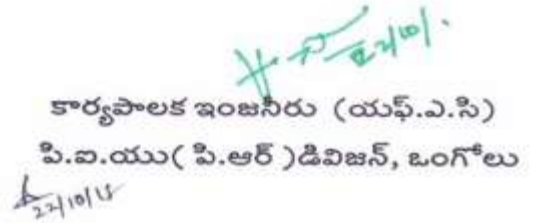 22/10/.
కార్యపాలక ఇంజనీరు (యఫ్.ఎ.సి)
పి.ఐ.యు( పి.ఆర్ )డివిజన్, ఒంగోలు
22/10/15